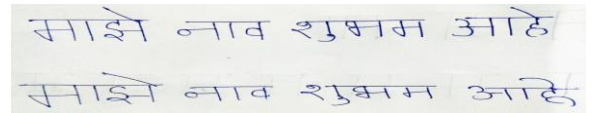 माझे नाव शुभम आहे
माझे नाव शुभम आहे